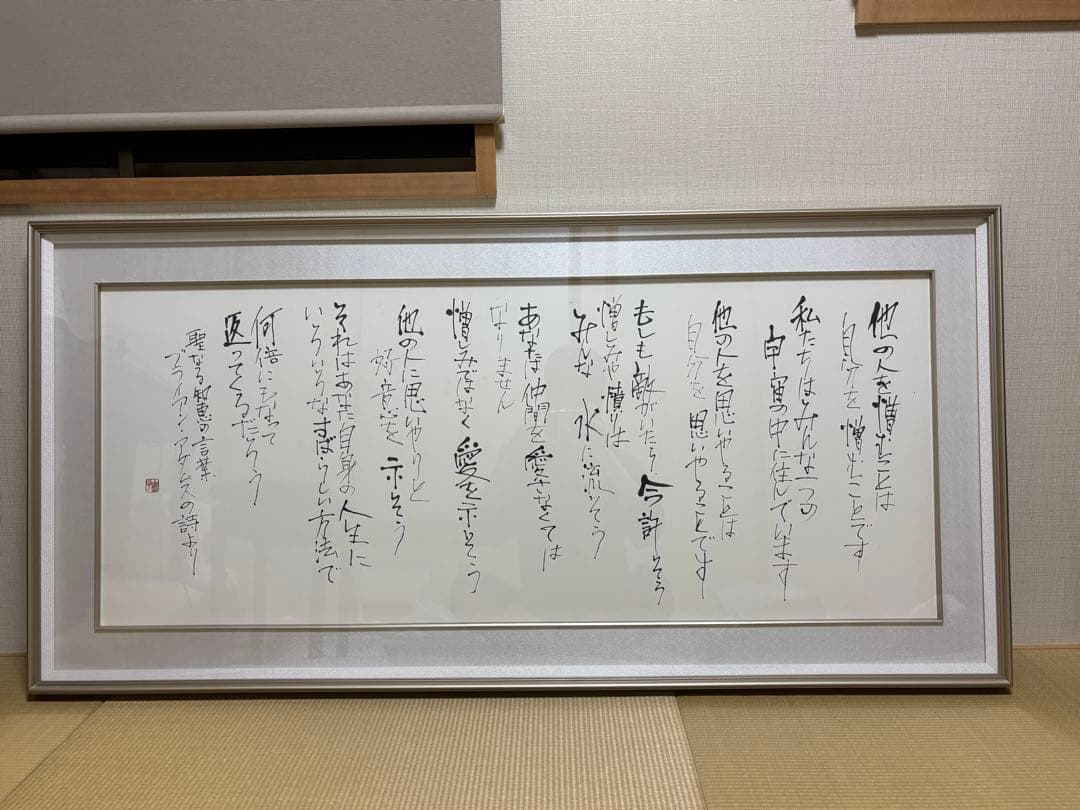 他の人を憎むことは
自分を憎むことです
私たちはみんな一つの
宇宙の中に住んでいます
他の人を思いやることは
自分を思いやることです
もしも敵がいたら今許しそう
憎しみや憤りは
みんな水に流そう
あなたは仲間を愛さなくては
なりません
憎しみではなく愛を示そう
他の人に思いやりと
好意を示そう
それはあなた自身の人生に
いろいろなすばらしい方法で
何倍にもなって
返ってくるだろう
聖なる智恵の言葉
ブライアン・アダムスの詩より